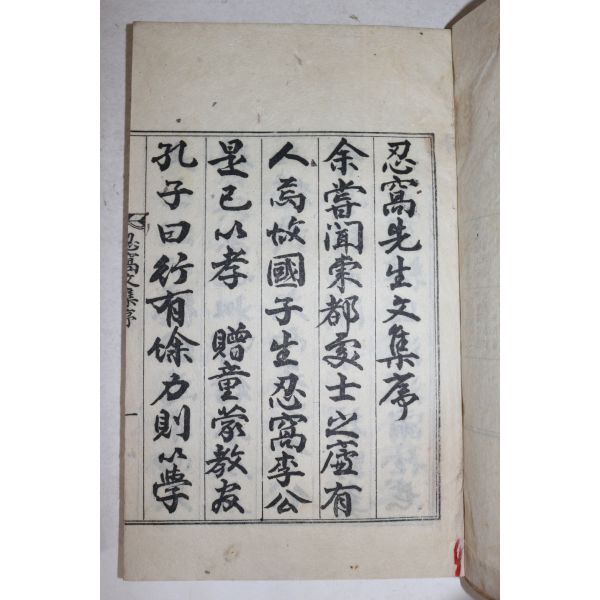 忍窩先生文集序
余嘗聞棠都處士之廬有
人焉故國子生忍窩李公
是已以孝 贈童蒙教官
孔子曰行有馀力則以學
忍窩文集序
一